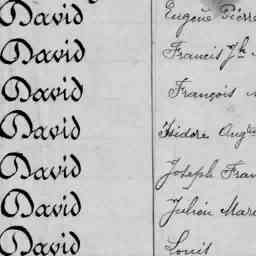 David Eugène Pierre
David Francis Jh
David François
David Isidore Augte
David Joseph Fran
David Julien Mari
David Louis